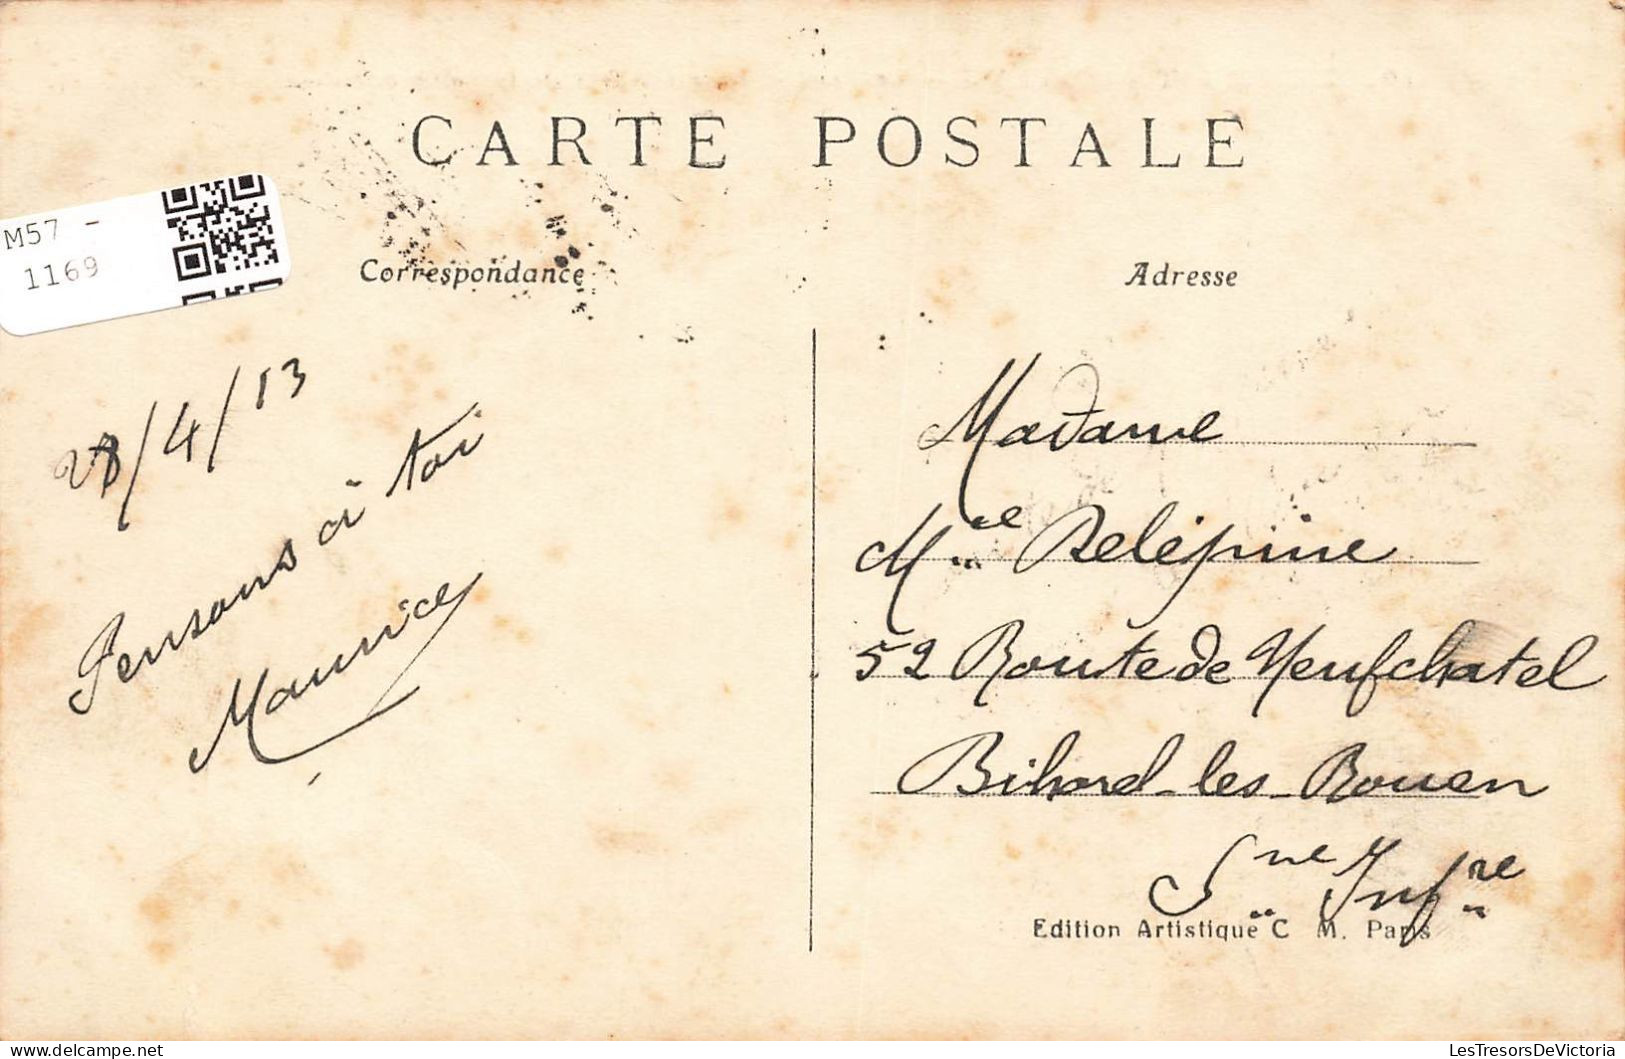 CARTE POSTALE
M57 -
1169
Correspondance
Adresse
28/4/13
Pensons à toi
Maurice
Madame
Mme Delépine
52 Route de Neufchatel
Bihorel-les-Rouen
Sne Infre
Edition Artistique C M. Paris
LesTresorsDeVictoria